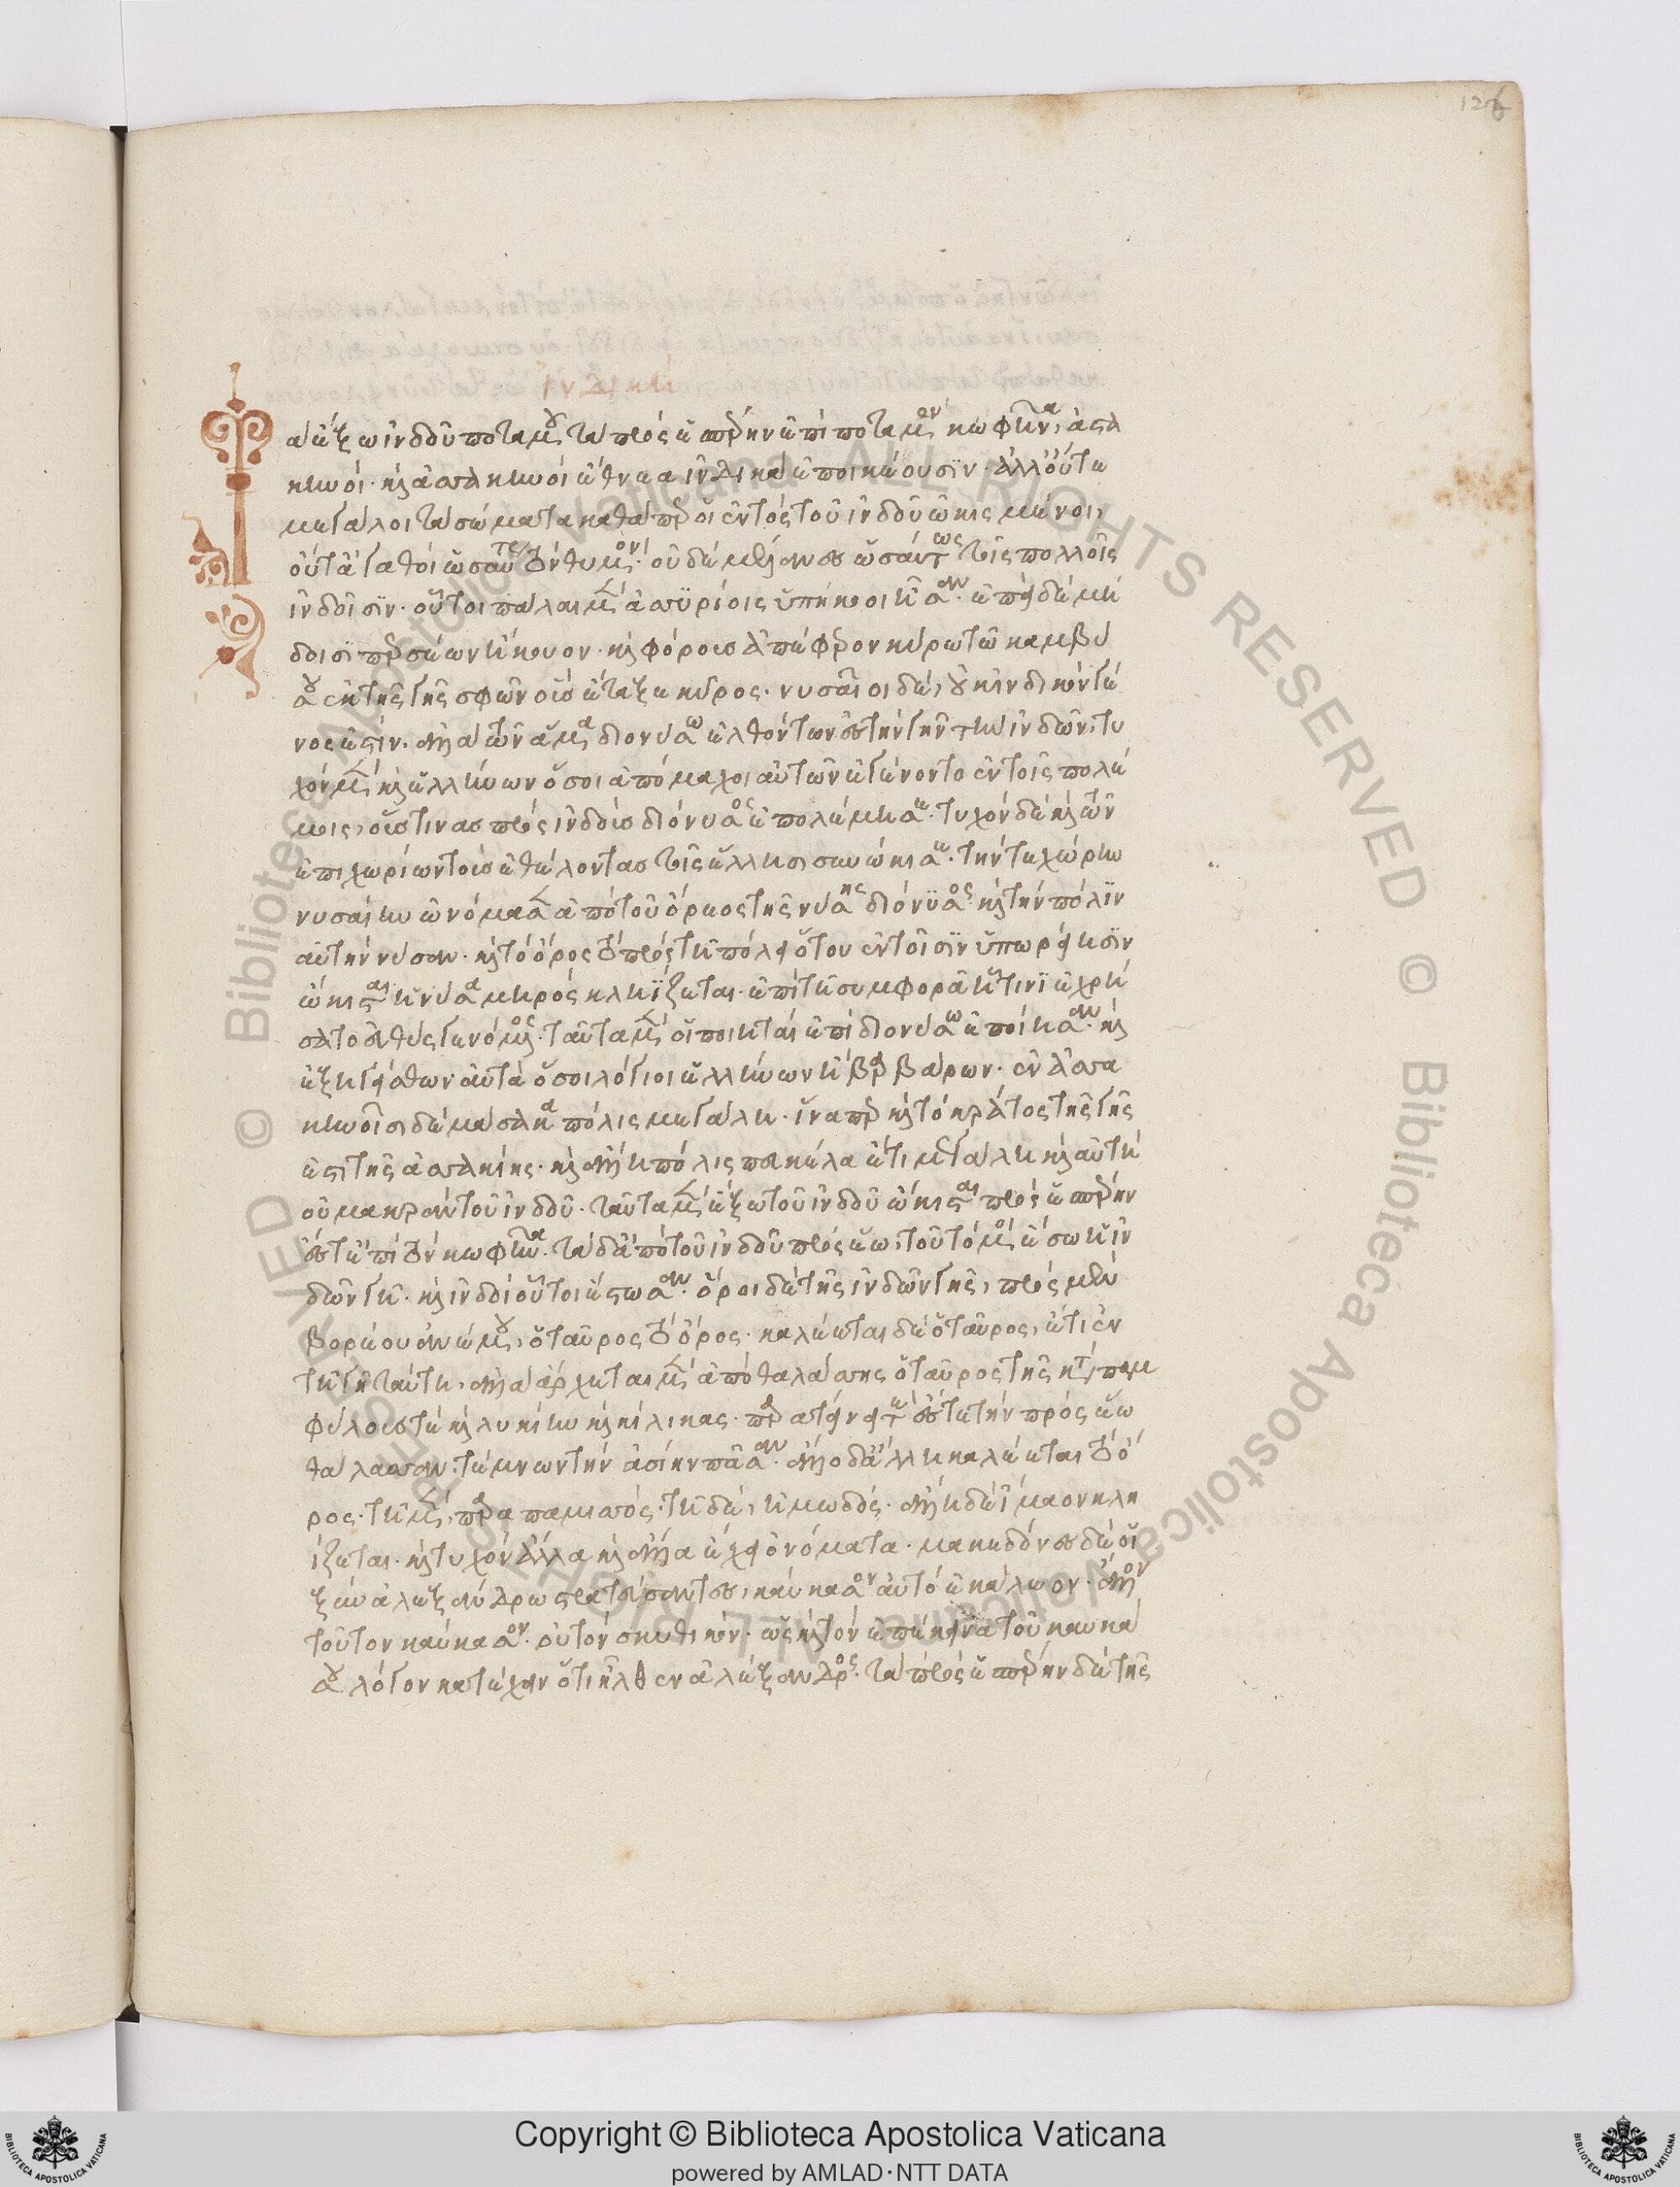 Ἰνδική
Τὰ ἔξω ἰνδοῦ ποταμοῦ τὰ πρὸς ἑσπέρην ἐπὶ ποταμὸν κωφῆνα, ἀστα
κηνοί· καὶ ἀσσακηνοὶ ἔθνεα ἰνδικὰ ἐποικέουσιν· ἀλλ' οὔτε
μεγάλοι τὰ σώματα καθάπερ οἱ ἐντὸς τοῦ ἰνδοῦ ὠκισμένοι,
οὔτ' ἀγαθοὶ ὡσαύτως τὸν θυμόν· οὐδὲ μέλανες ὡσαύτως τοῖς πολλοῖς
ἰνδοῖσιν· οὗτοι πάλαι μὲν ἀσσυρίοις ὑπήκοοι ἦσαν· ἐπεὶ δὲ μή
δοισι περσέων ἤκουον· καὶ φόρους ἀπέφερον κύρω τῶ καμβύ
σου ἐκ τῆς γῆς σφῶν οὓς ἔταξε κῦρος· νυσαῖοι δὲ, οὐκ ἰνδικὸν γέ
νος ἐστίν· ἀλλὰ τῶν ἅμα διονύσω ἐλθόντων ἐς τὴν γῆν τὴν ἰνδῶν, τυ
χὸν μὲν καὶ ἑλλήνων ὅσοι ἀπόμαχοι αὐτῶν ἐγένοντο ἐν τοῖς πολέ
μοις, οὕστινας πρὸς ἰνδοὺς διόνυσος ἐπολέμησε· τυχὸν δὲ καὶ τῶν
ἐπιχωρίων τοὺς ἐθέλοντας τοῖς ἕλλησι συνώκισε· τήν τε χώρην
νυσαίην ὠνόμασεν ἀπὸ τοῦ ὄρεος τῆς νύσης διόνυσος καὶ τὴν πόλιν
αὐτὴν νύσαν· καὶ τὸ ὄρος τὸ πρὸς τῆ πόλει ὅτου ἐν τοῖσιν ὑπωρείησιν
ὤκισται ἡ νύσα μηρὸς κληΐζεται· ἐπὶ τῆ συμφορᾶ ἥτινι ἐχρή
σατο εὐθὺς γενόμενος· ταῦτα μὲν οἱ ποιηταὶ ἐπὶ διονύσω ἐποίησαν· καὶ
ἐξηγείσθων αὐτὰ ὅσοι λόγιοι ἑλλήνων ἢ βαρβάρων· ἐν ἀσσα
κηνοῖσι δὲ μάσσακα πόλις μεγάλη· ἵναπερ καὶ τὸ κράτος τῆς γῆς
ἐστι τῆς ἀσσακίης· καὶ ἄλλη πόλις πευκέλα ἔτι μεγάλη καὶ αὐτὴ
οὐ μακρὰν τοῦ ἰνδοῦ· ταῦτα μὲν ἔξω τοῦ ἰνδοῦ ὤκισται πρὸς ἑσπέρην
ἔστε ἐπὶ τὸν κωφῆνα· τὰ δ' ἀπὸ τοῦ ἰνδοῦ πρὸς ἕω, τοῦτό μοι ἔσω ἡ ἰν
δῶν γῆ· καὶ ἰνδοὶ οὗτοι ἔστωσαν· ὅροι δὲ τῆς ἰνδῶν γῆς, πρὸς μὲν
βορέου ἀνέμου, ὁ ταῦρος τὸ ὄρος· καλέεται δὲ ὁ ταῦρος, ἔτι ἐν
τῆ γῆ ταύτη, ἀλλὰ ἄρχεται μὲν ἀπὸ θαλάσσης ὁ ταῦρος τῆς κατὰ παμ
φύλους τε καὶ λυκίην καὶ κίλικας· παρατείνει τε ἔστε τὴν πρὸς ἕω
θάλασσαν· τέμνων τὴν ἀσίην πᾶσαν· ἄλλο δ' ἄλλη καλέεται τὸ ὄ
ρος· τῆ μὲν, παραπαμισός· τῆ δὲ, ἠμωδός· ἄλλη δὲ ἴμαον κλη
ίζεται· καὶ τυχὸν ἄλλα καὶ ἄλλα ἔχει ὀνόματα· μακεδόνες δὲ οἱ
ξὺν ἀλεξάνδρω στρατεύσαντες, καύκασον αὐτὸ ἐκάλεον· ἄλλον
τοῦτον καύκασον· οὐ τὸν σκυθικόν· ὡς καὶ τὸν ἐπέκεινα τοῦ καυκά
σου λόγον κατέχειν ὅτι ἦλθεν ἀλέξανδρος· τὰ πρὸς ἑσπέρην δὲ τῆς
Copyright © Biblioteca Apostolica Vaticana
powered by AMLAD·NTT DATA